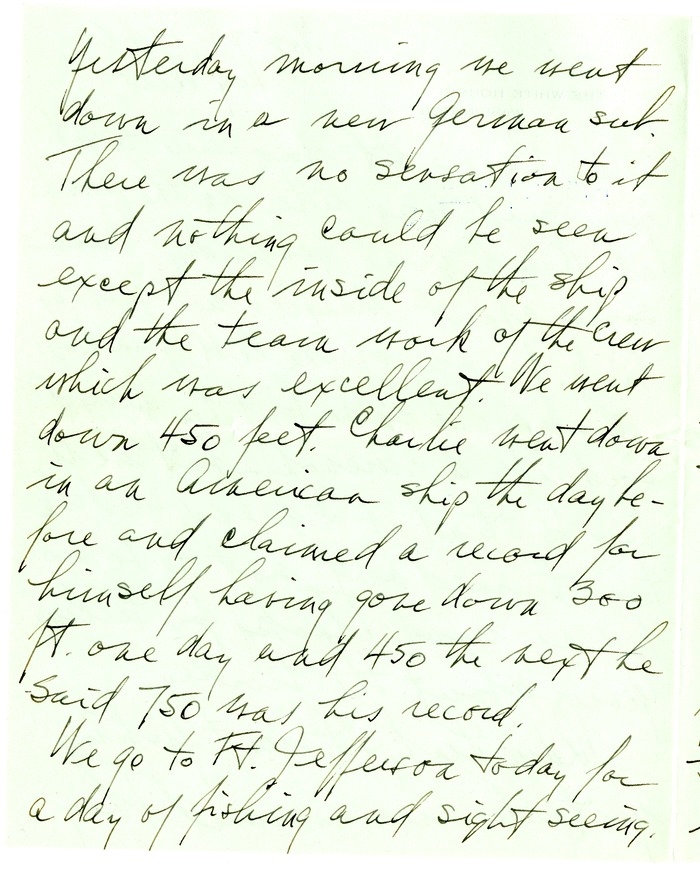 Yesterday morning we went
down in a new German sub.
There was no sensation to it
and nothing could be seen
except the inside of the ship
and the team work of the crew
which was excellent. We went
down 450 feet. Charlie went down
in an American ship the day be-
fore and claimed a record for
himself having gone down 300
ft. one day and 450 the next he
said 750 was his record.
We go to Ft. Jefferson today for
a day of fishing and sight seeing.